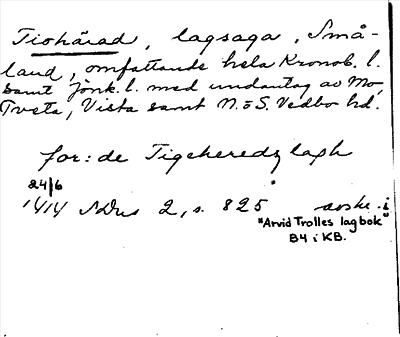 Tiohärad, lagsaga, Små-
land, omfattande hela Kronob. l.
samt Jönk. l. med undantag av Mo,
Tveta, Vista samt N. o S. Vedbo hd.
for: de Tigeheredz lagh
24/6
1414 SDns 2, s. 825 avskr. i
"Arvid Trolles lagbok"
B4 i KB.